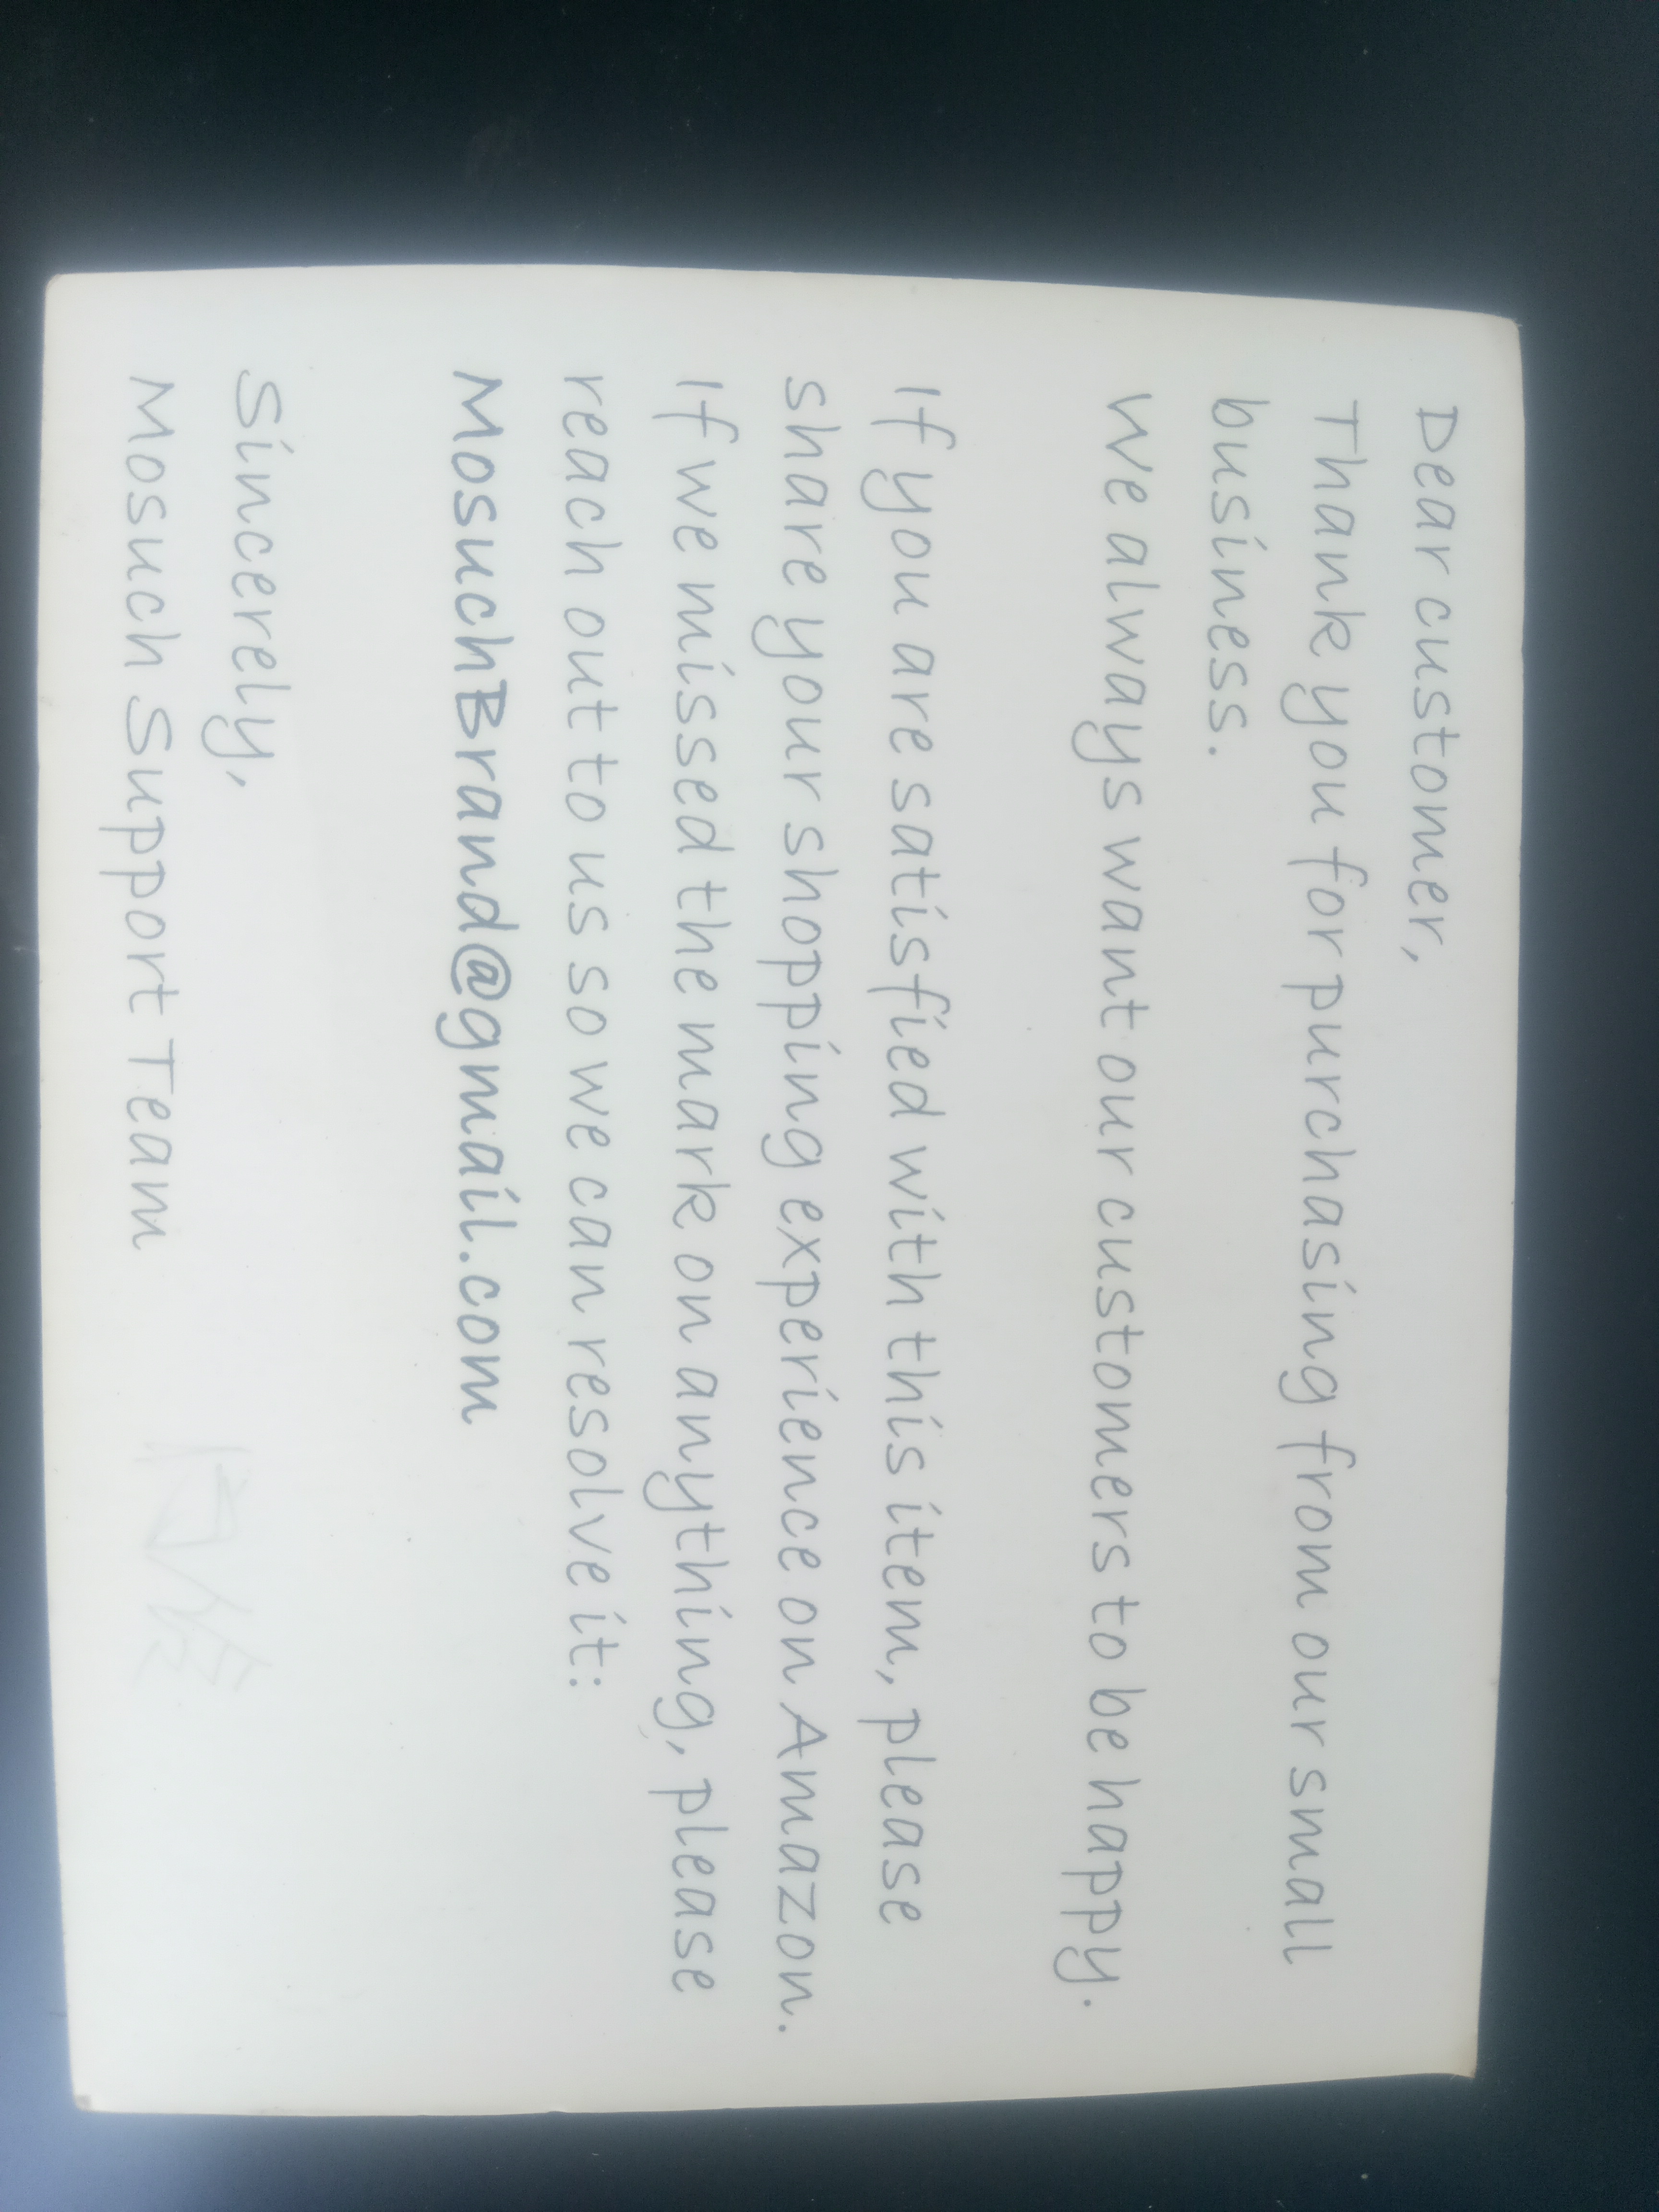 Dear customer,
Thank you for purchasing from our small
business.
We always want our customers to be happy.
If you are satisfied with this item, please
share your shopping experience on Amazon.
If we missed the mark on anything, please
reach out to us so we can resolve it:
MosuchBrand@gmail.com
Sincerely,
Mosuch Support Team